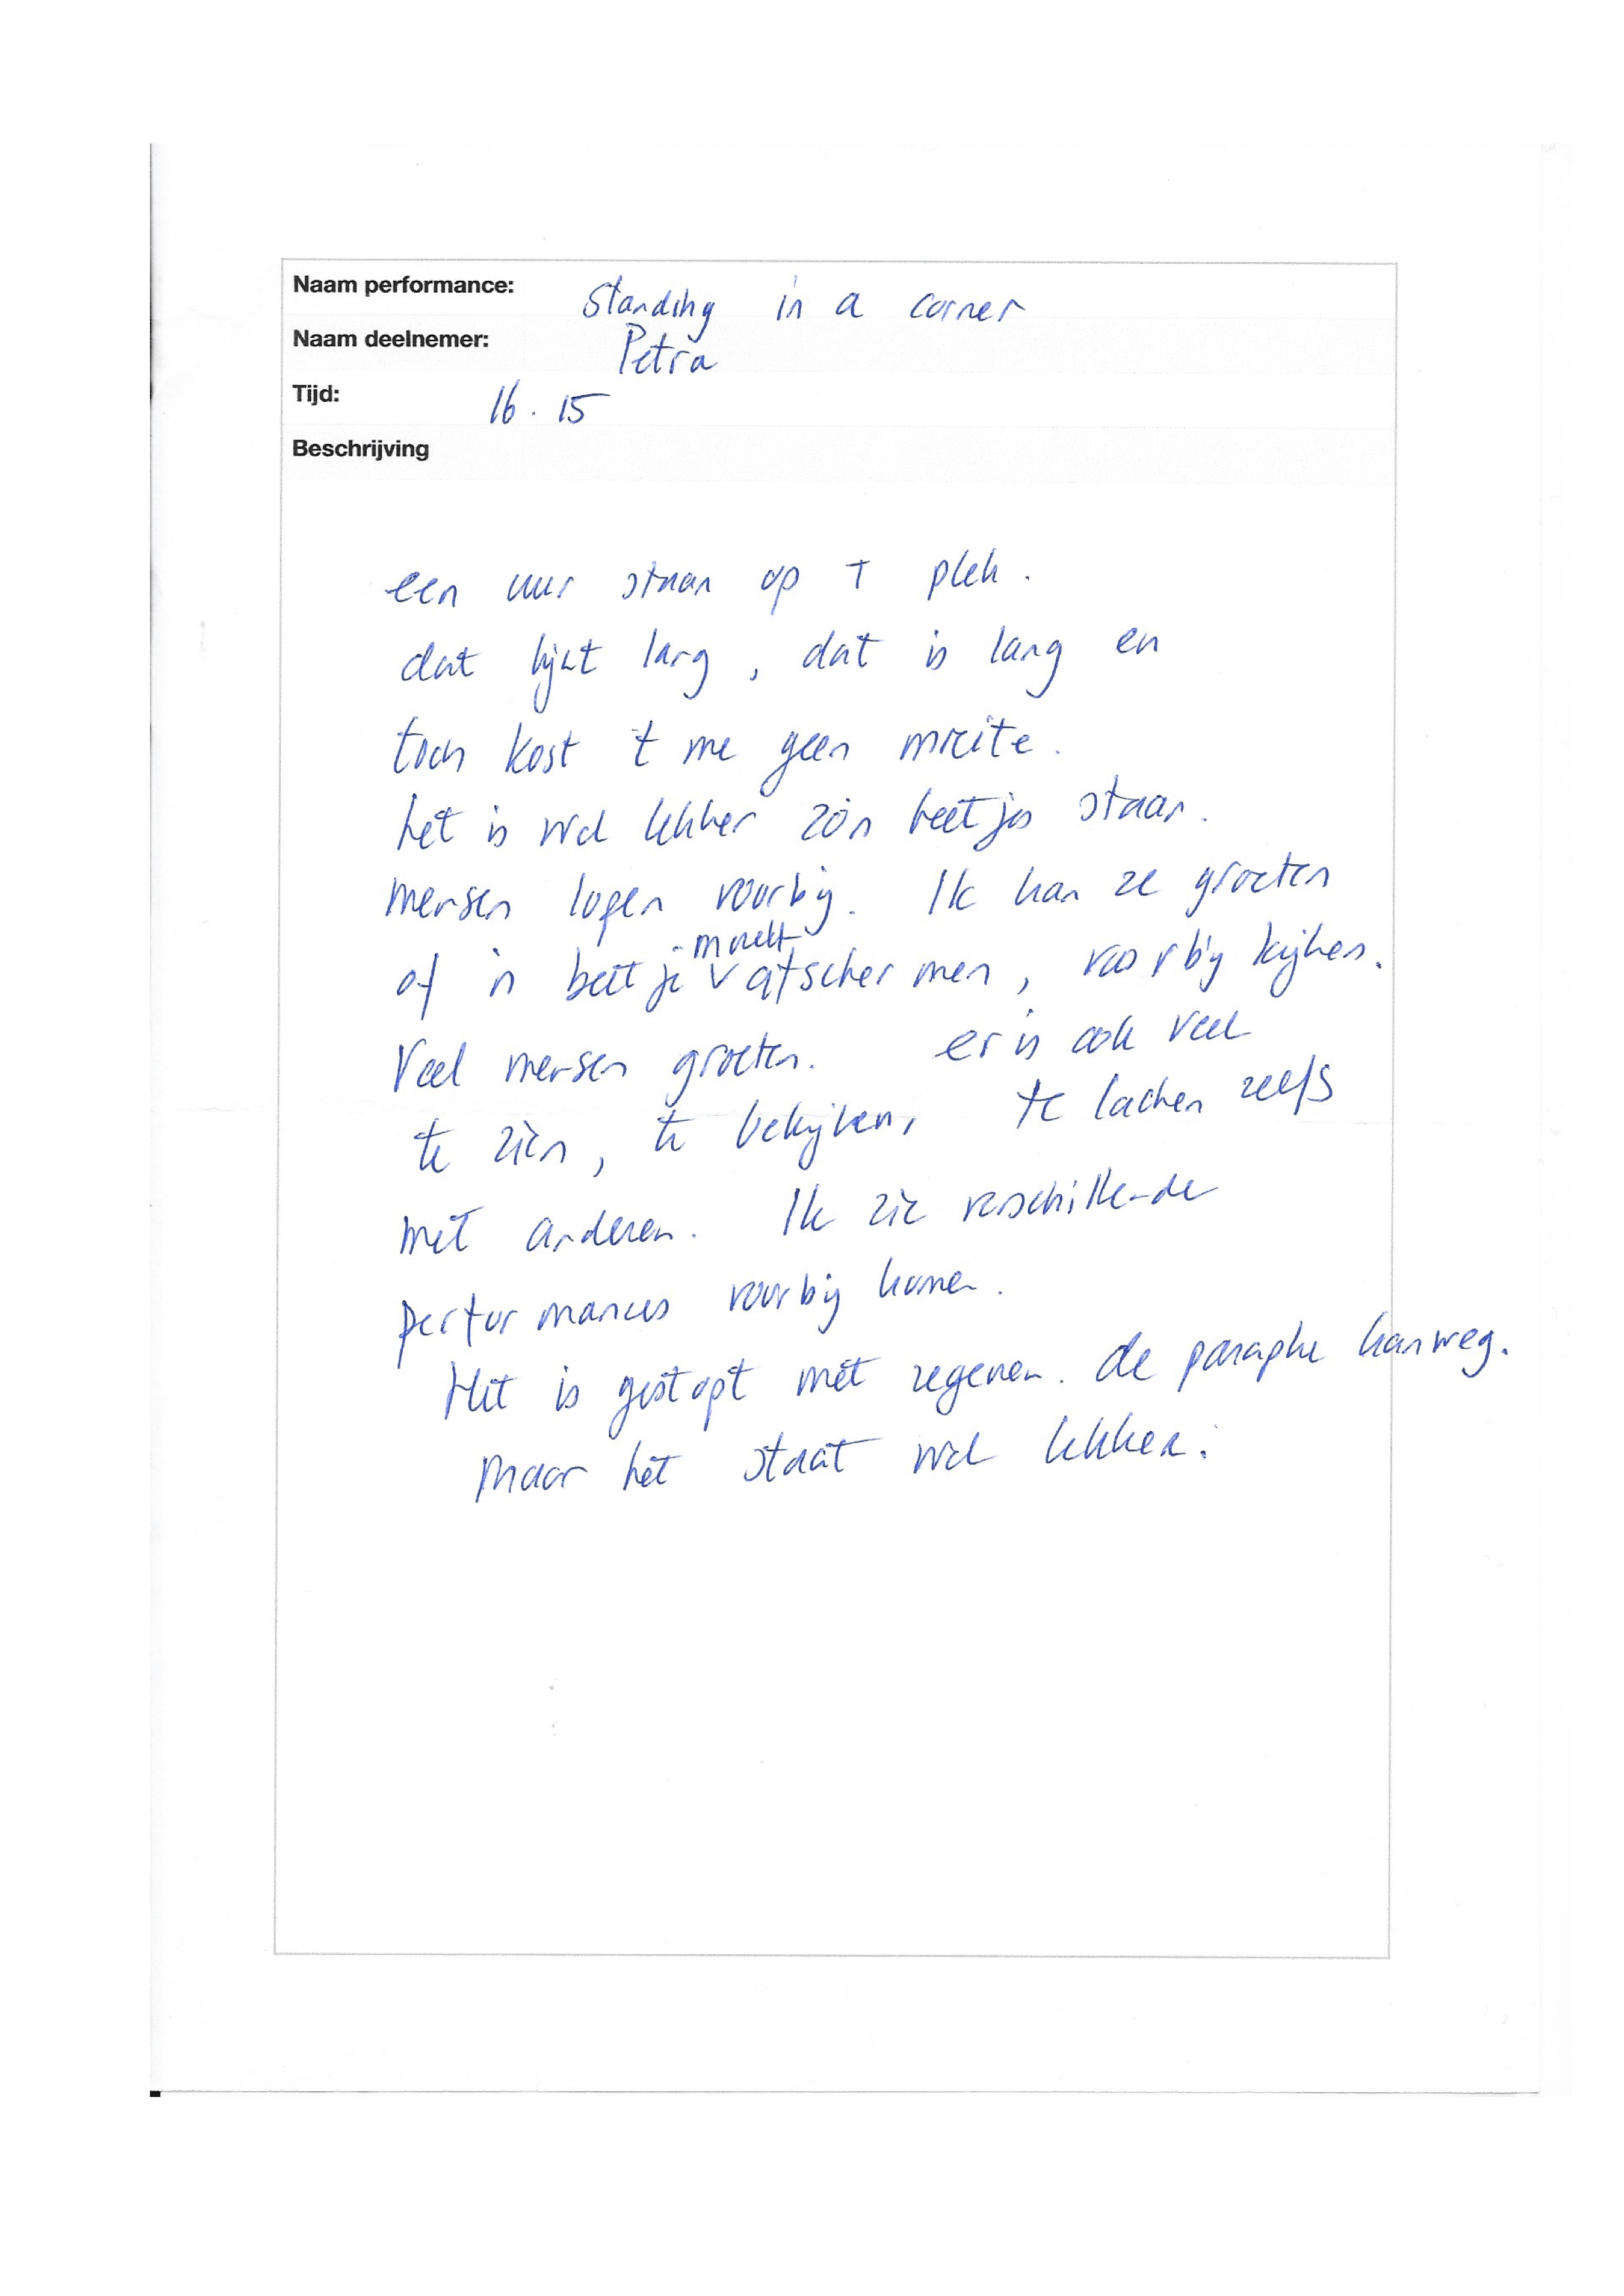 Naam performance: Standing in a corner
Naam deelnemer: Petra
Tijd: 16.15
Beschrijving
een uur staan op 1 plek.
dat lijkt lang, dat is lang en
toch kost 't me geen moeite.
het is wel lekker zo'n beetje staan.
mensen lopen voorbij. Ik kan ze groeten
of 'n beetje afschermen, voorbij kijken.
Veel mensen groeten. er is ook veel
te zien, te bekijken, te lachen zelfs
met anderen. Ik zie verschillende
performances voorbij komen.
Het is gestopt met regenen. de paraplu kan weg.
maar het staat wel lekker.